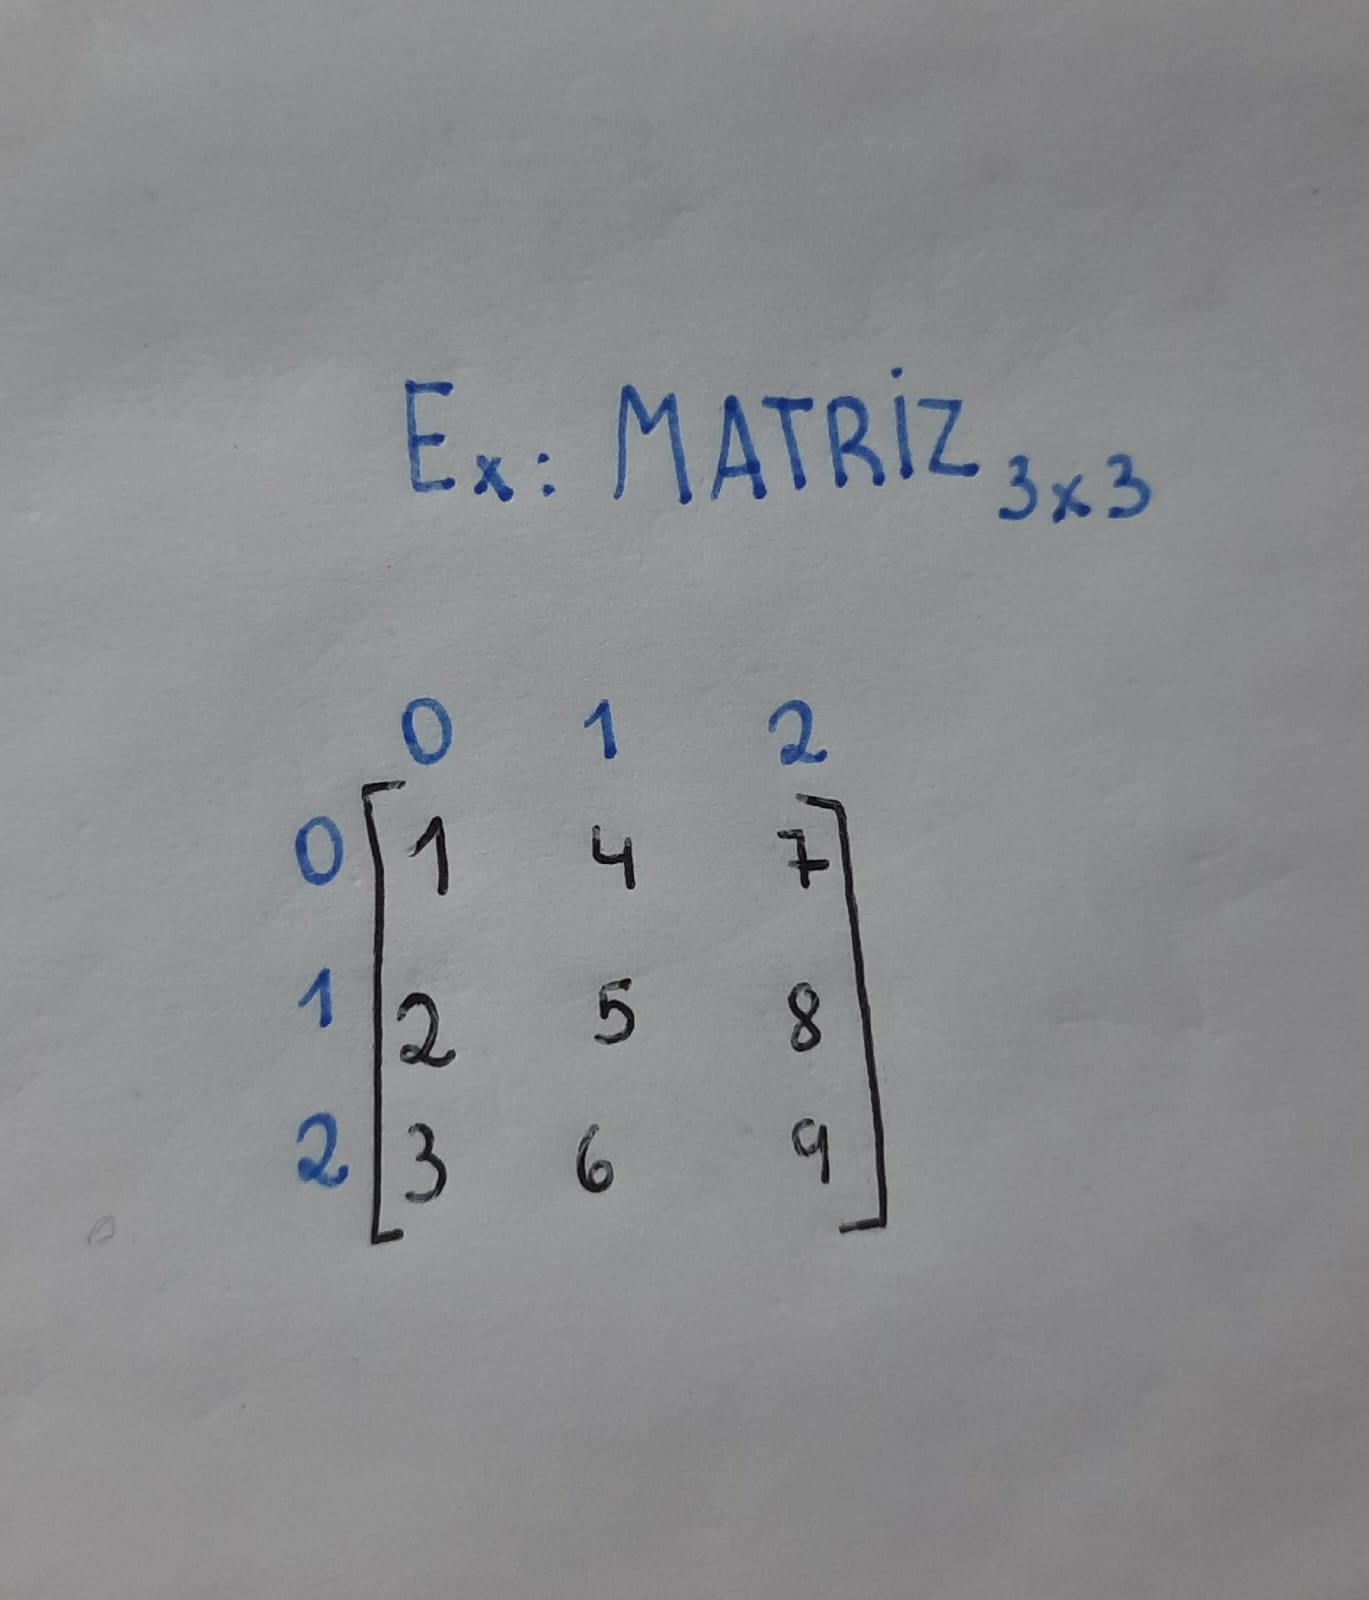 Ex: MATRiZ 3x3
0 1 2
0 1 4 7
1 2 5 8
2 3 6 9